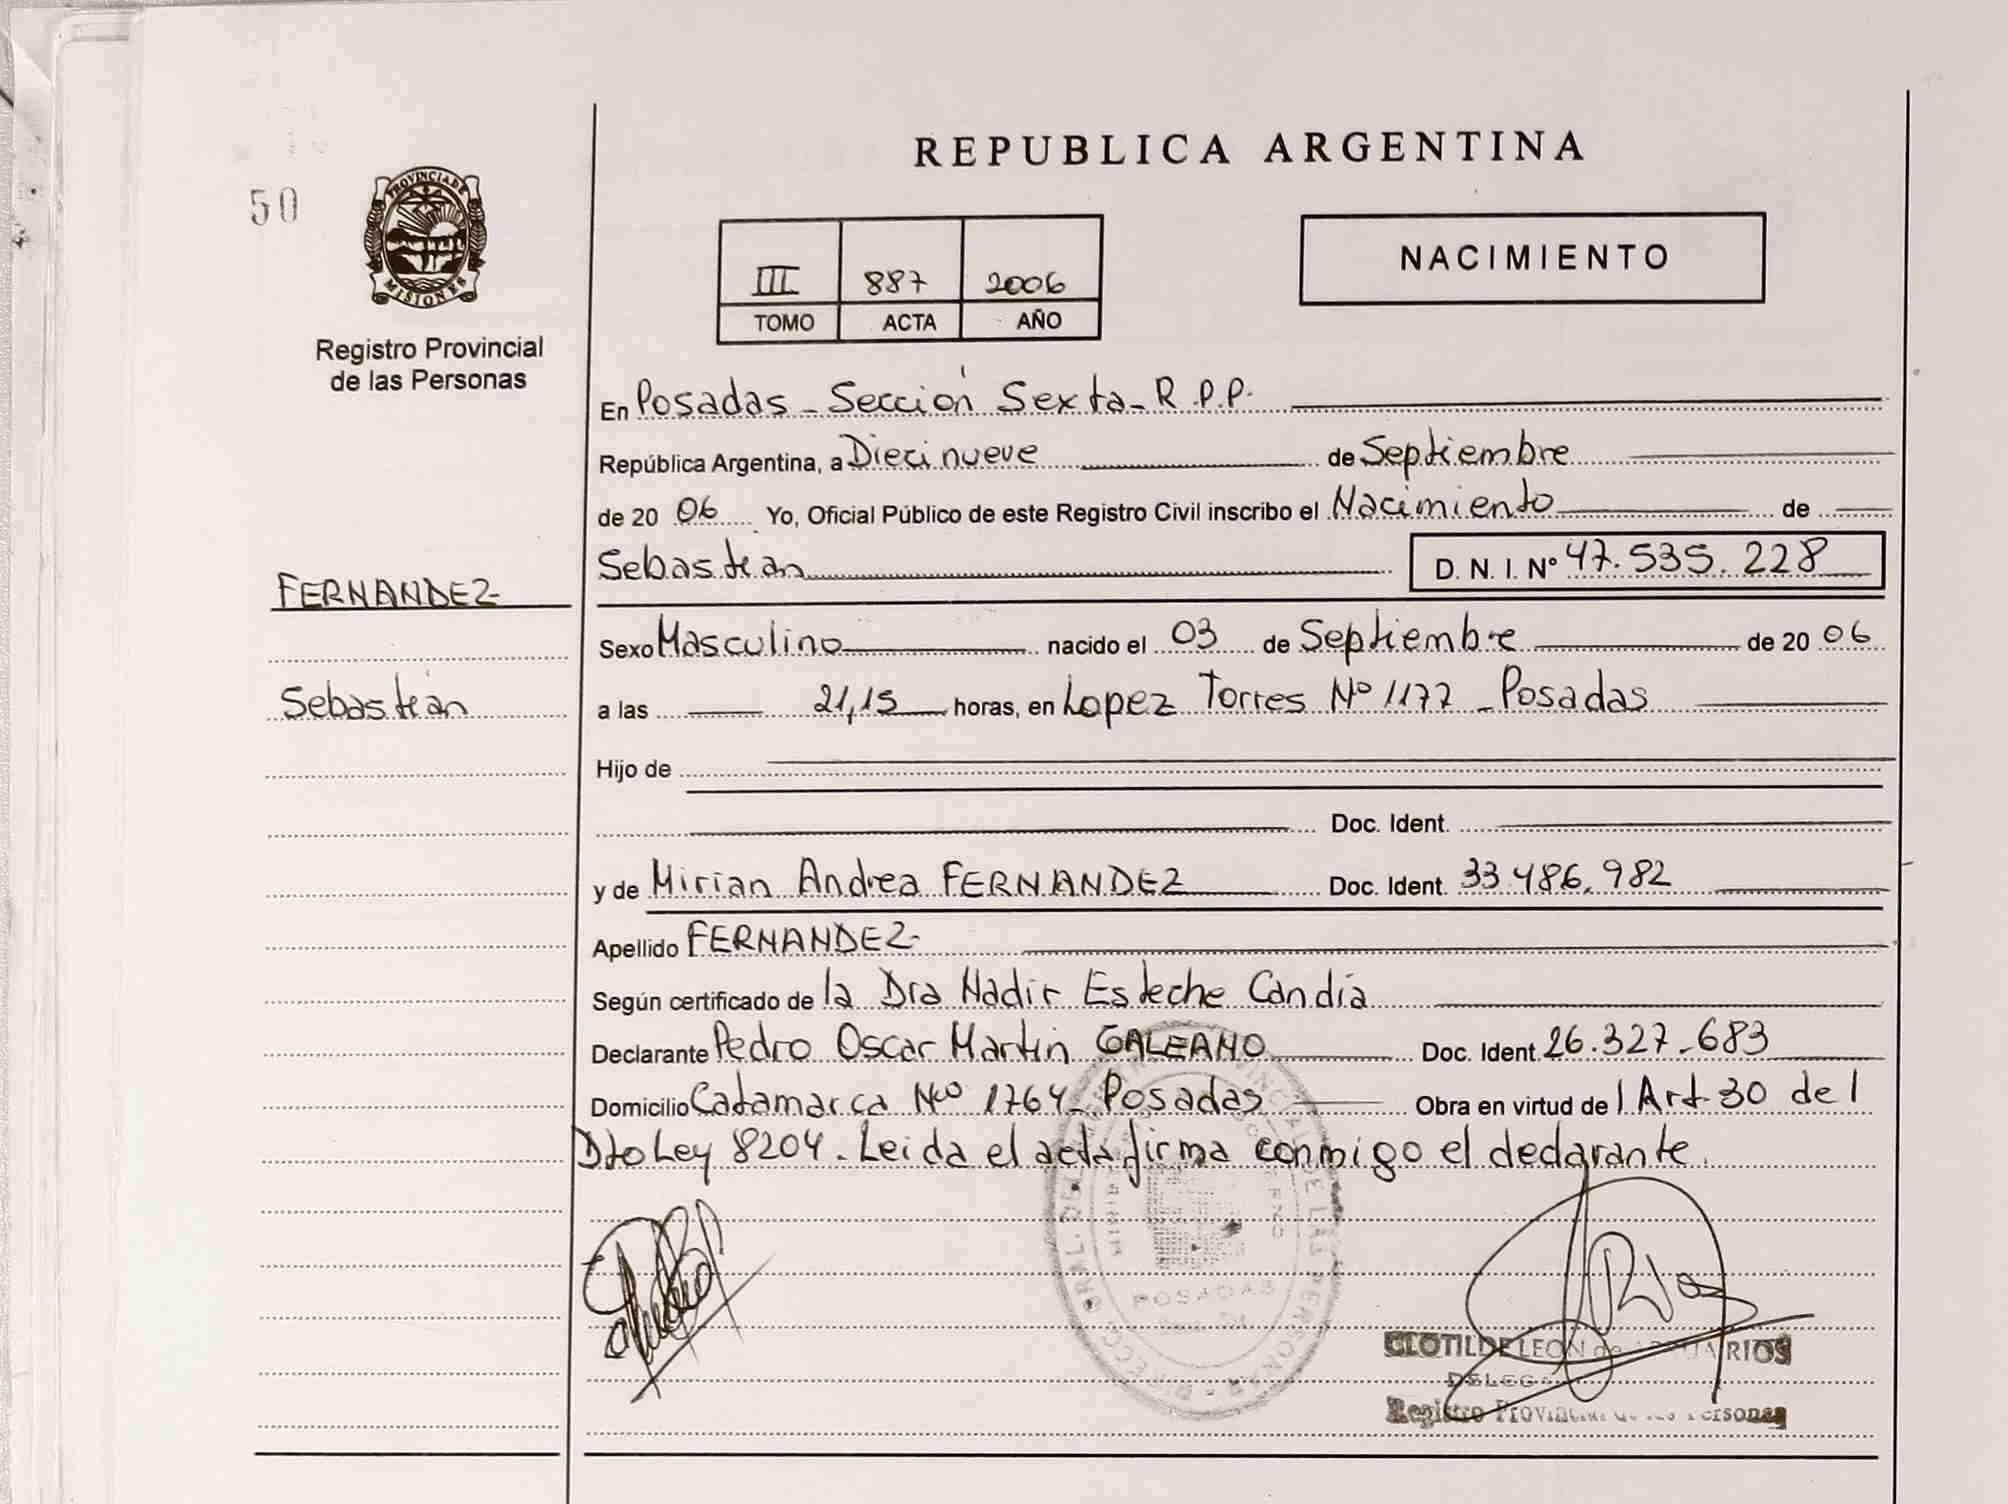 REPUBLICA ARGENTINA
50
PROVINCIA DE
MISIONES
Registro Provincial
de las Personas
III 887 2006
TOMO ACTA AÑO
NACIMIENTO
En Posadas - Sección Sexta - R.P.P.
República Argentina, a Diecinueve de Septiembre
de 20 06 Yo, Oficial Público de este Registro Civil inscribo el Nacimiento de
Sebastián D. N. I. Nº 47.535.228
FERNANDEZ-
Sexo Masculino nacido el 03 de Septiembre de 20 06
Sebastián
a las 21,15 horas, en Lopez Torres Nº 1177 - Posadas
Hijo de
Doc. Ident.
y de Mirian Andrea FERNANDEZ Doc. Ident. 33.486.982
Apellido FERNANDEZ-
Según certificado de la Dra Nadir Esteche Candia
Declarante Pedro Oscar Martin GALEANO Doc. Ident. 26.327.683
Domicilio Catamarca Nº 1764 - Posadas Obra en virtud del Art. 30 del
Dto Ley 8204. Leida el acta firma conmigo el declarante.
POSADAS
CLOTILDE LEON de
Registro Provincial de las Personas